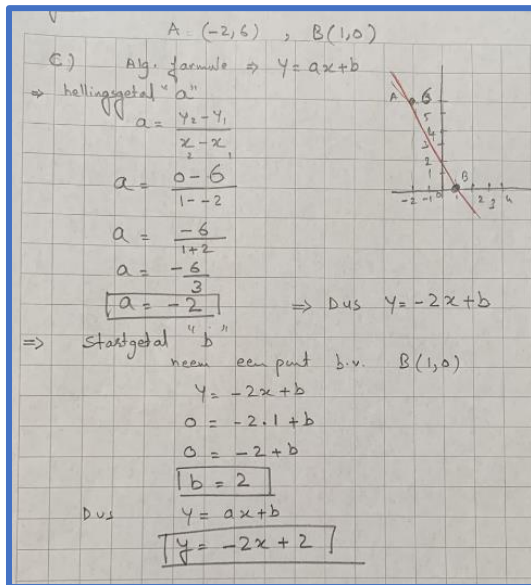 A = (-2,6) , B(1,0)
C.) Alg. formule ⇒ y = ax+b
⇒ hellingsgetal "a"
a = (y₂ - y₁)/(x₂ - x₁)
a = (0 - 6)/(1 - -2)
a = -6/(1+2)
a = -6/3
a = -2 ⇒ Dus y = -2x + b
⇒ Startgetal "b"
neem een punt b.v. B(1,0)
y = -2x + b
0 = -2.1 + b
0 = -2 + b
b = 2
Dus y = ax+b
y = -2x + 2
A 6
5
4
3
2
1
B
-2 -1 0 1 2 3 4